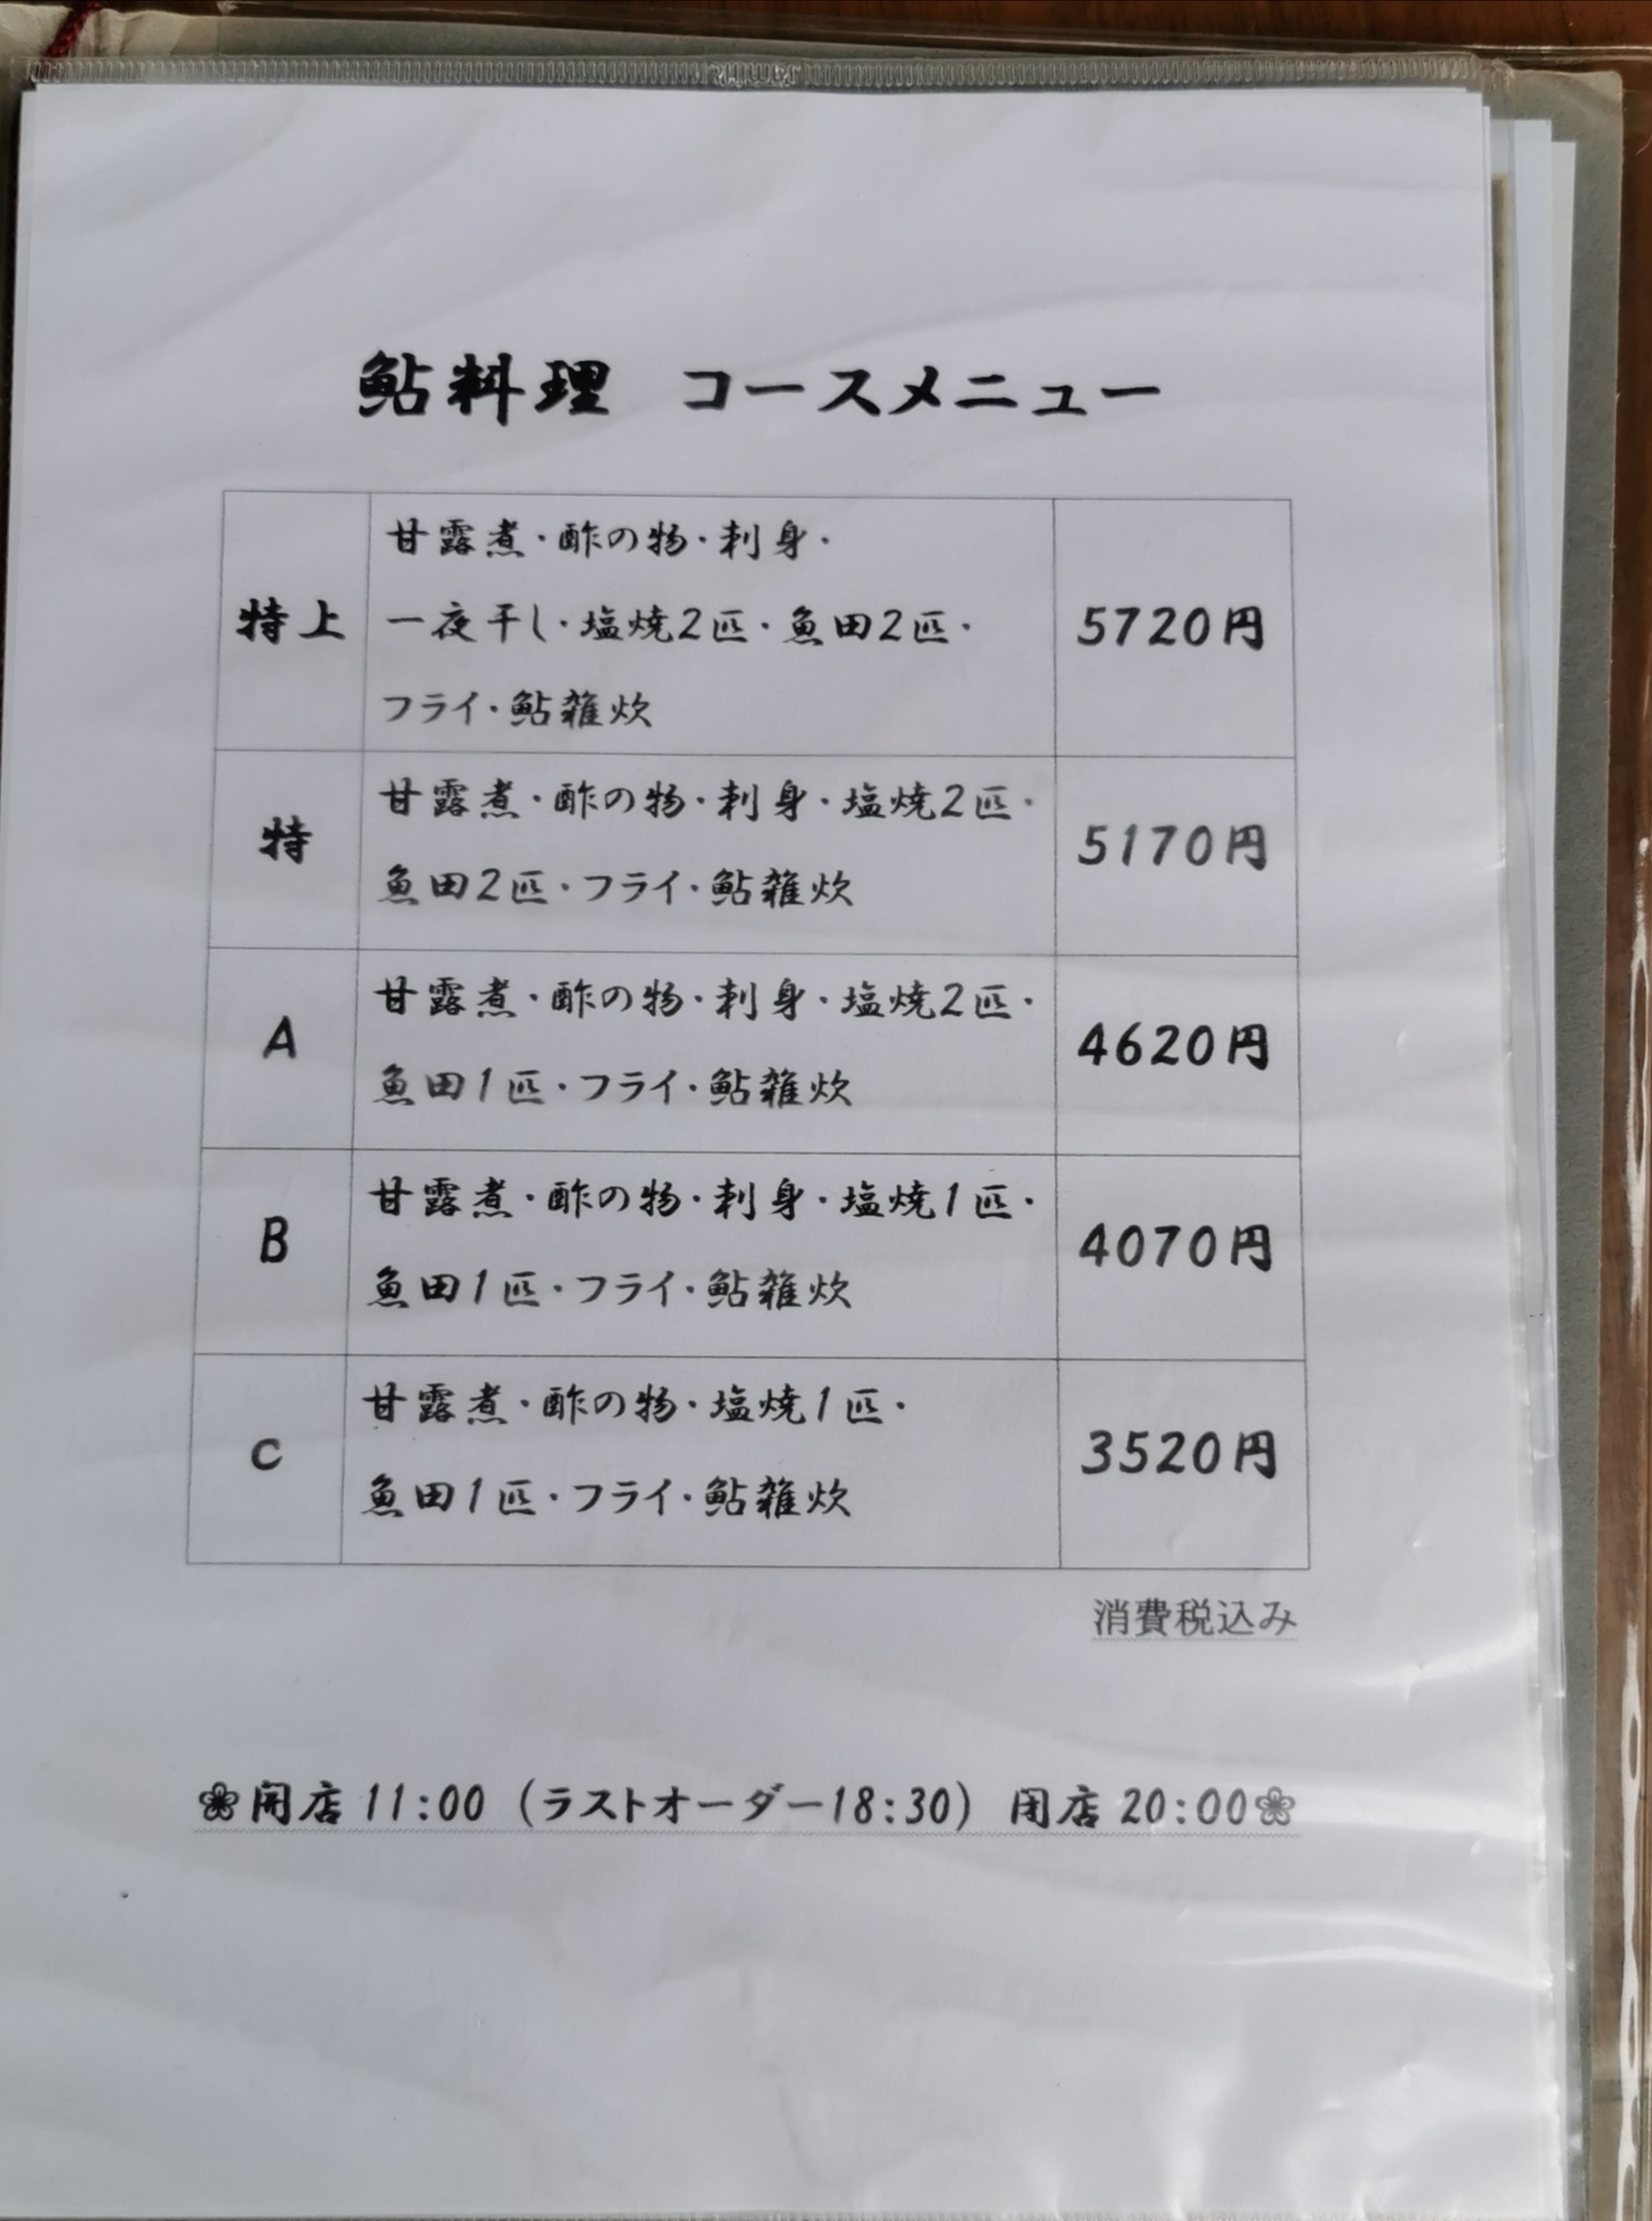 鮎料理 コースメニュー
特上
甘露煮・酢の物・刺身・
一夜干し・塩焼2匹・魚田2匹・
フライ・鮎雑炊
5720円
特
甘露煮・酢の物・刺身・塩焼2匹・
魚田2匹・フライ・鮎雑炊
5170円
A
甘露煮・酢の物・刺身・塩焼2匹・
魚田1匹・フライ・鮎雑炊
4620円
B
甘露煮・酢の物・刺身・塩焼1匹・
魚田1匹・フライ・鮎雑炊
4070円
C
甘露煮・酢の物・塩焼1匹・
魚田1匹・フライ・鮎雑炊
3520円
消費税込み
❀開店 11:00（ラストオーダー18:30） 閉店 20:00❀